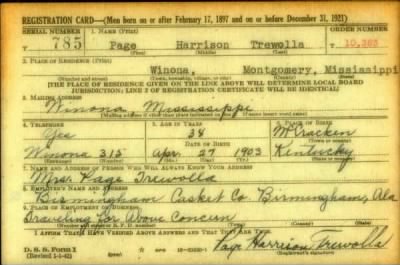 REGISTRATION CARD—(Men born on or after February 17, 1897 and on or before December 31, 1921)
SERIAL NUMBER 1. NAME (Print) ORDER NUMBER
T 785 Page Harrison Trewolla 10,363
(First) (Middle) (Last)
2. PLACE OF RESIDENCE (Print)
Winona, Montgomery, Mississippi
(Number and street) (Town, township, village, or city) (County) (State)
[THE PLACE OF RESIDENCE GIVEN ON THE LINE ABOVE WILL DETERMINE LOCAL BOARD
JURISDICTION; LINE 2 OF REGISTRATION CERTIFICATE WILL BE IDENTICAL]
3. MAILING ADDRESS
Winona Mississippi
4. TELEPHONE 5. AGE IN YEARS 6. PLACE OF BIRTH
Yes 38 McCracken
DATE OF BIRTH
Winona 315 Apr. 27 1903 Kentucky
7. NAME AND ADDRESS OF PERSON WHO WILL ALWAYS KNOW YOUR ADDRESS
Mrs. Page Trewolla
8. EMPLOYER'S NAME AND ADDRESS
Birmingham Casket Co Birmingham, Ala
9. PLACE OF EMPLOYMENT OR BUSINESS
Traveling For Above Concern
I AFFIRM THAT I HAVE VERIFIED ABOVE ANSWERS AND THAT THEY ARE TRUE.
D. S. S. Form 1
(Revised 1-1-42)
Page Harrison Trewolla
(Registrant's signature)